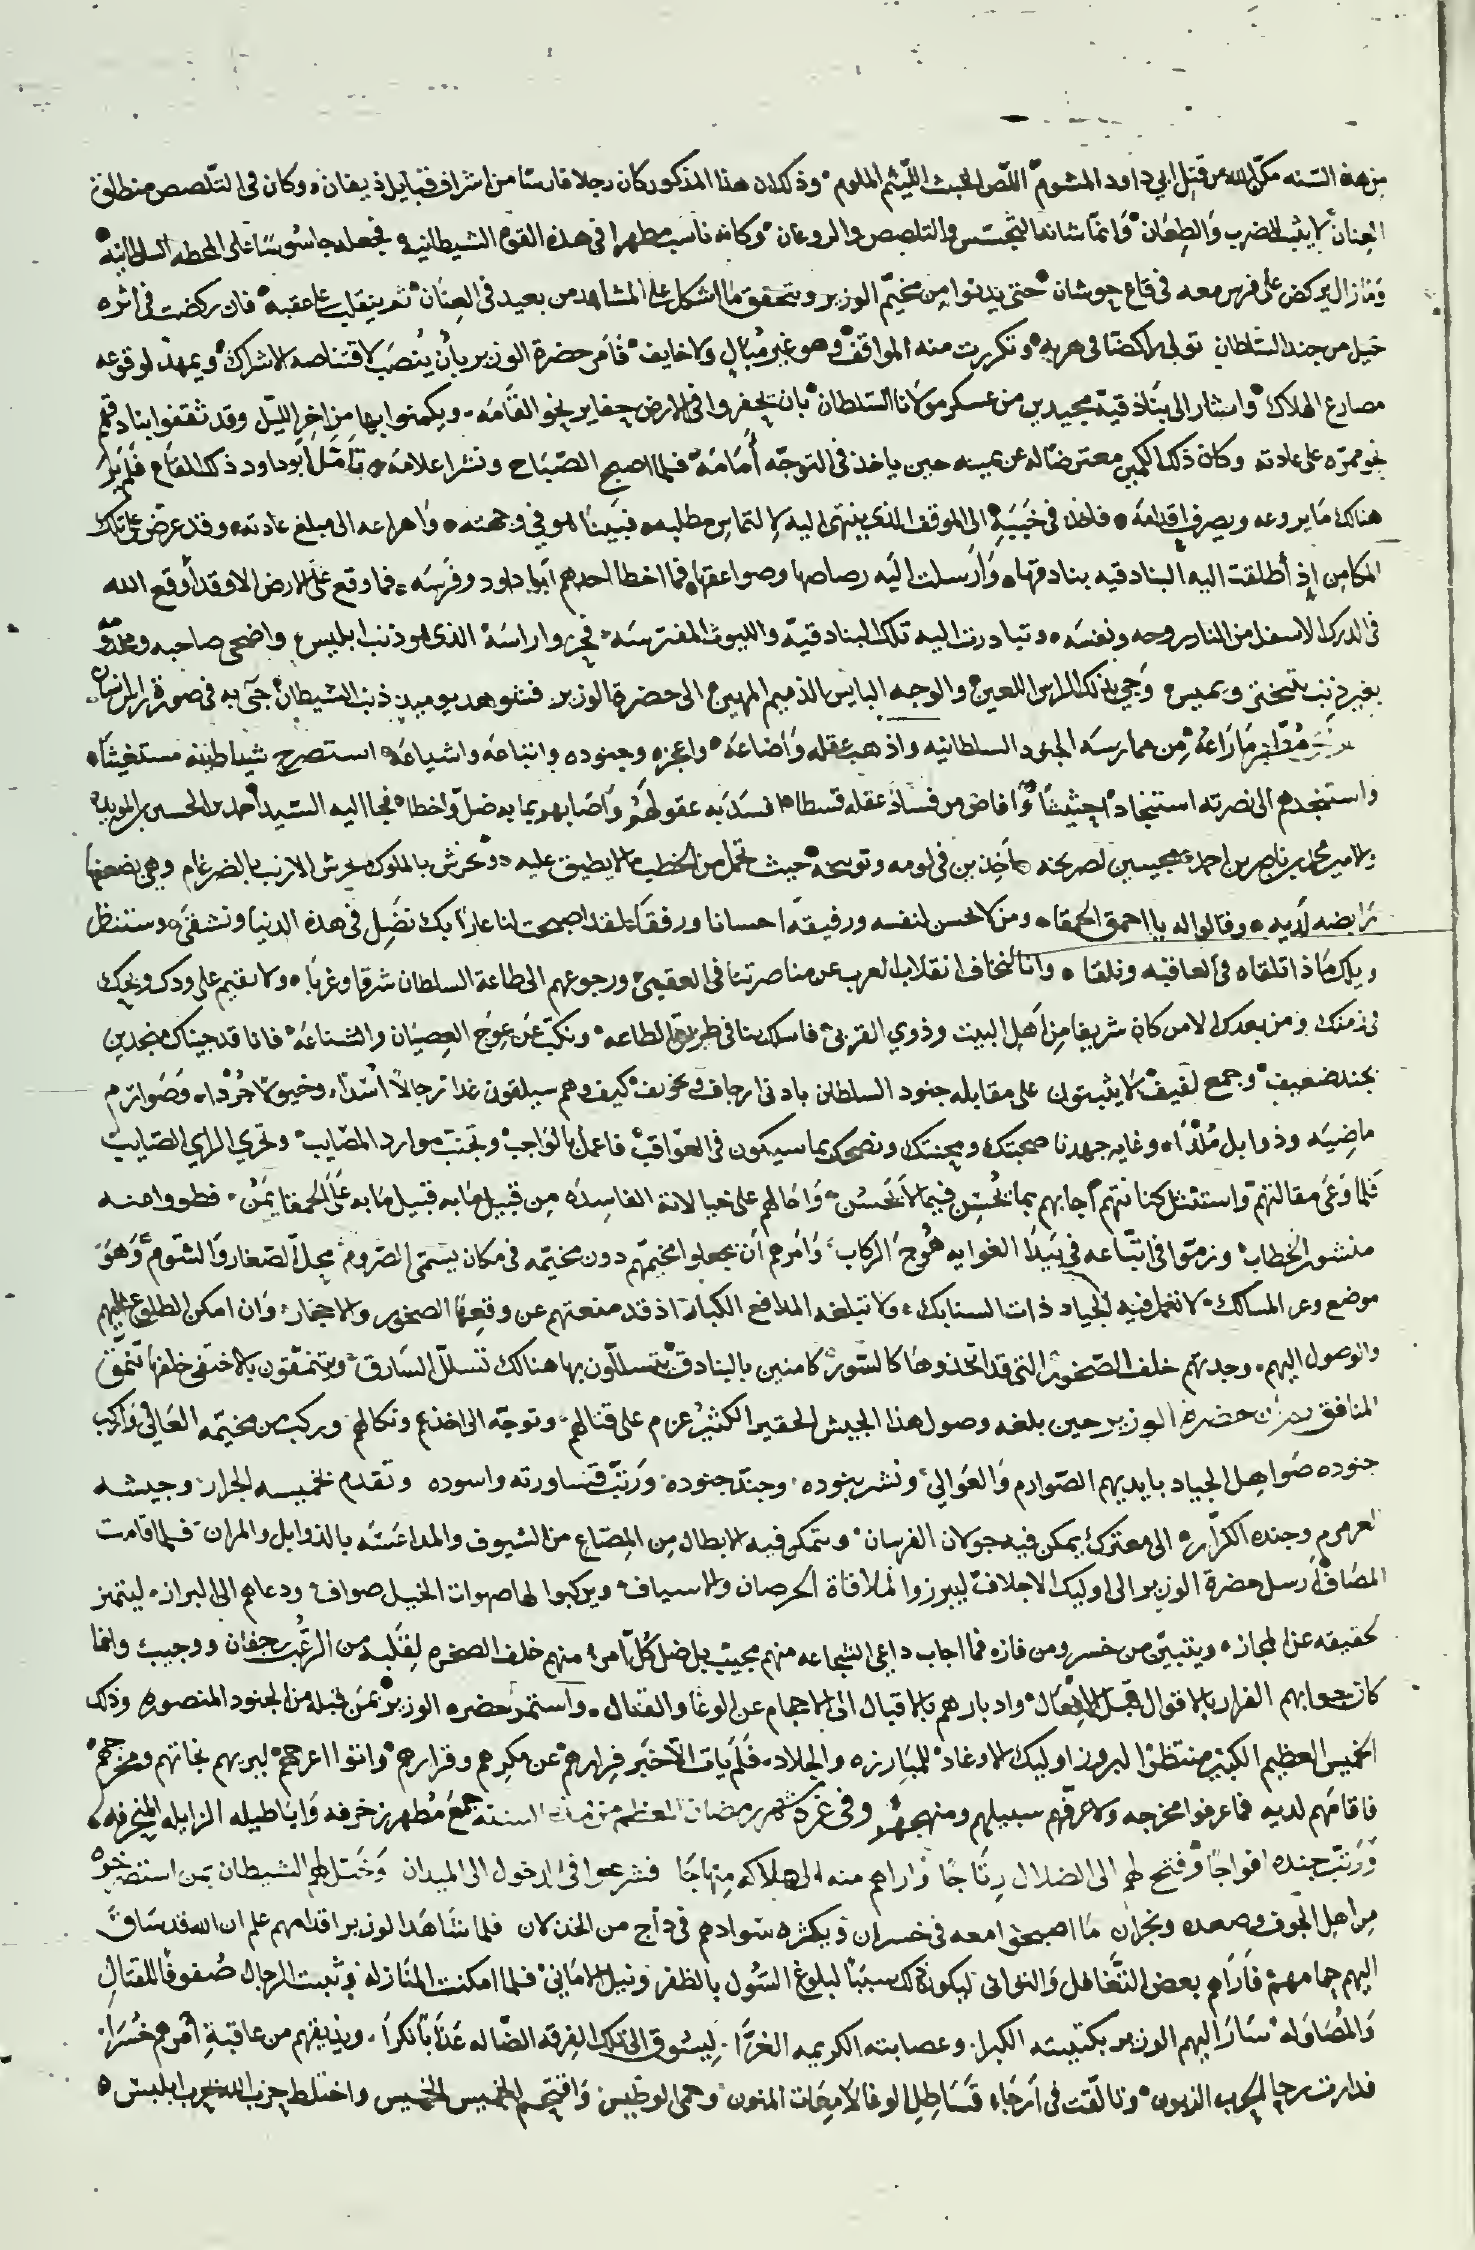 من هذه السنه مكن الله من قتل ابي داود المشوم اللص الخبيث اللئيم الملوم وذلك ان هذا المذكور كان رجلا فارسًا من اشراف قبايل ذيفان وكان في التلصص منطلق
العنان لا يثبت للضرب والطعان وانما شانه التجسس والتلصص والروغان وكانه ناسب مطهرا في هذه القوه الشيطانيه فجعله جاسوسا على المحطه السلطانيه
وما زال يركض على فرس معه في قاع حوشان حتى يدنوا من مخيم الوزير ويتحقق ما اشكل على المشاهد من بعيد في العنان ثم ينقلب على عقبه فان ركضت في اثره
خيل من جند السلطان تولى راكضًا في هربه وتكررت منه المواقف وهو غير مبال ولا خايف فامر حضرة الوزير بأن ينصب لاقتناصه الاشراك ويمهد لوقوعه
مصارع الهلاك واشار الى بنادقية مجيدين من عسكر مولانا السلطان بان يحفروا في الارض حفاير نحو القامه ويكمنوا بها من اخر الليل وقد ثقفوا بنادقهم
نحو ممره على عادته وكان ذلك الكمين معترضًا له عن يمينه حين ياخذ في التوجه أمامه فلما اصبح الصباح ونشر اعلامه تأمل ابو داود ذلك المقام فلم ير
هنالك ما يروعه ويصرف اقدامه فاخذ في خببه الى الموقف الذي ينتهي اليه لالتماس مطلبه فبينا هو في وجهته واهراعه الى مبلغ عادته وقد عرض على تلك
المكامن إذ أطلقت اليه البنادقيه بنادقها وأرسلت اليه رصاصها وصواعقها فما اخطا احدهم ابا داود وفرسه فما وقع على الارض الا وقد أوقع الله
في الدرك الاسفل من النار روحه ونفسه وتبادرت اليه تلك البنادقية والليوث المفترسه فجزوا راسه الذي هو ذنب ابليس واضحى صاحبه وعدوه
بغير ذنب يتبختر ويميس وجي بذلك الراس اللعين والوجه البايس الذميم المهين الى حضرة الوزير فشوهد يوميذ ذنب الشيطان جيء به في صورة راس انسان
من ممارسه الجنود السلطانيه واذهب عقله واضاعه واعجزه وجنوده واتباعه واشياعه استصرخ شياطينه مستغيثًا
واستنجدهم الى نصرته استنجادًا حثيثًا وافاض من فساد عقله قسطا افسد به عقولهم واصابهم بما به ضل واخطا فجا اليه السيد أحمد بن الحسين بن المويد
والامير محمد بن ناصر بن احمد مجيبين لصريخه آخذين في لومه وتوبيخه حيث تحمل من الخطب ما لا يطيق عليه وتحرش بالملوك تحرش الارنب بالضرغام وهي بضعفها
رابضه لديه وقالوا له يا احمق الحمقا ومن لا يحسن لنفسه ورفيقه احسانا ورفقا لقد اصبحت لنا عارًا بك نضل في هذه الدنيا ونشقى وستنظر
ويلك ماذا تلقاه في العاقبه ونلقا وانا نخاف انقلاب العرب عن مناصرتنا في العقبى ورجوعهم الى طاعة السلطان شرقا وغربًا ولا نقيم على ودك وحبك
في زمنك ومن بعدك الا من كان شريفا من أهل البيت وذوي القربى فاسلك بنا في طريق الطاعه ونكب عن عوج العصيان والشناعه فانا قد جيناك منجدين
بجند ضعيف وجمع لفيف لا يثبتون على مقابله جنود السلطان بادنى ارجاف وتخويف كيف وهم سيلقون غدا رجالًا أشدّا وخيولا جُردا وصوارم
ماضيه وذوابل مُلدًا وغايه جهدنا صحبتك ومحبتك ونصحك بما سيكون في العواقب فاعمل بالواجب وتجنب موارد المصايب وتحري الراي الصايب
فلما وعى مقالتهم واستنثل كنانتهم أجابهم بما يحسن فيما لا يحسن واحالهم على خيالاته الفاسده من قبيل ما به قبيل ما به على الحمقا يمن فطووا عنه
منشور الخطاب وزموا في اتباعه في بيدا الغوايه هوج الركاب وامرهم أن يجعلوا مخيمهم دون مخيمه في مكان يسمى الضروم محل الصغار والشوم وهو
موضع وعر المسالك لا تعمل فيه الجياد ذات السنابك ولا تبلغه المدافع الكبار اذ قد منعتهم عن وقعها الصخور والاحجار وان امكن الطلوع عليهم
والوصول اليهم وجدتهم خلف الصخور التي قد اتخذوها كالسور كامنين بالبنادق يتسللون بها هنالك تسلل السارق ويتنمقون بالاختفى خلفها تنمق
المنافق حضرة الوزير حين بلغه وصول هذا الجيش الحقير الكثير عزم على قتالهم وتوجه الى اخذهم ونكالهم وركب من مخيمه العالي واركب
جنوده صواهل الجياد بايديهم الصوارم والعوالي ونشر بنوده وجند جنوده ورتب قساورته واسوده وتقدم بخميسه الجرار وجيشه
العرمرم وجنده الكرار الى معترك يمكن فيه جولان الفرسان ويتمكن فيه الابطال من المصاع من السيوف والمداعسه بالذوابل والمران فلما قامت
المصاف أرسل حضرة الوزير الى اوليك الاجلاف ليبرزوا لملاقاة الخرصان والاسياف ويركبوا لها صهوات الخيل صواف ودعاهم الى البراز ليتميز
حقيقه عن المجاز ويتبين من خسر ومن فاز فما اجاب داعي الشجاعه منهم مجيب بل ضل كل امرء منهم خلف الصخره لقلبه من الرعب رجفان ووجيب وانما
كان جوابهم الفرار بالاقوال قبل الافعال وادبارهم بالاقبال الى الاحجام عن الوغا والقتال واستمر حضره الوزير بمن قبله من الجنود المنصوره وذلك
الخميس العظيم الكبير منتظرًا لبروز اوليك الاوغاد للمبارزه والجلاد فلم يات الا خبر فرارهم عن مكرهم وقرارهم وانثوا اعرجهم ليريهم نجاتهم ومخرجهم
فاقامهم لديه فما عرفوا مخرجه ولا عرفهم سبيلهم ومنهجهم وفي غرة شهر رمضان المعظم من هذه السنه جمع مُطهر زخرفه واباطيله الزايله المنحرفه
ورتب جنده افواجًا وفتح لهم الى الضلال رتاجًا واراهم منه الى هلاكه منهاجًا فشرعوا في الدخول الى الميدان وخيّل لهم الشيطان بمن استنصر
من اهل الجوف وصعده ونجران ما اصبحوا معه في خسران وبكثره سوادهم في داج من الخذلان فلما شاهد الوزير اقدامهم علم ان الله قد ساق
اليهم حمامهم فأراهم بعض التغافل والتوانى ليكون ذلك سببًا لبلوغ السول بالظفر ونيل الاماني فلما امكنت المنازله وثبت الرجال صفوفًا للقتال
والمصاوله سار اليهم الوزير بكتيبته الكبرا وعصابته الكريمه الغرا ليسوق الى تلك الفرقه الضاله عذابًا نكرا ويذيقهم من عاقبة أمرهم خسرا
فدارت رحا الحرب الزبون وتالقت في أرجاء قساطل الوغا لامعات المنون وحمى الوطيس واقتحم الخميس الخميس واختلط حزب الله بحزب ابليس